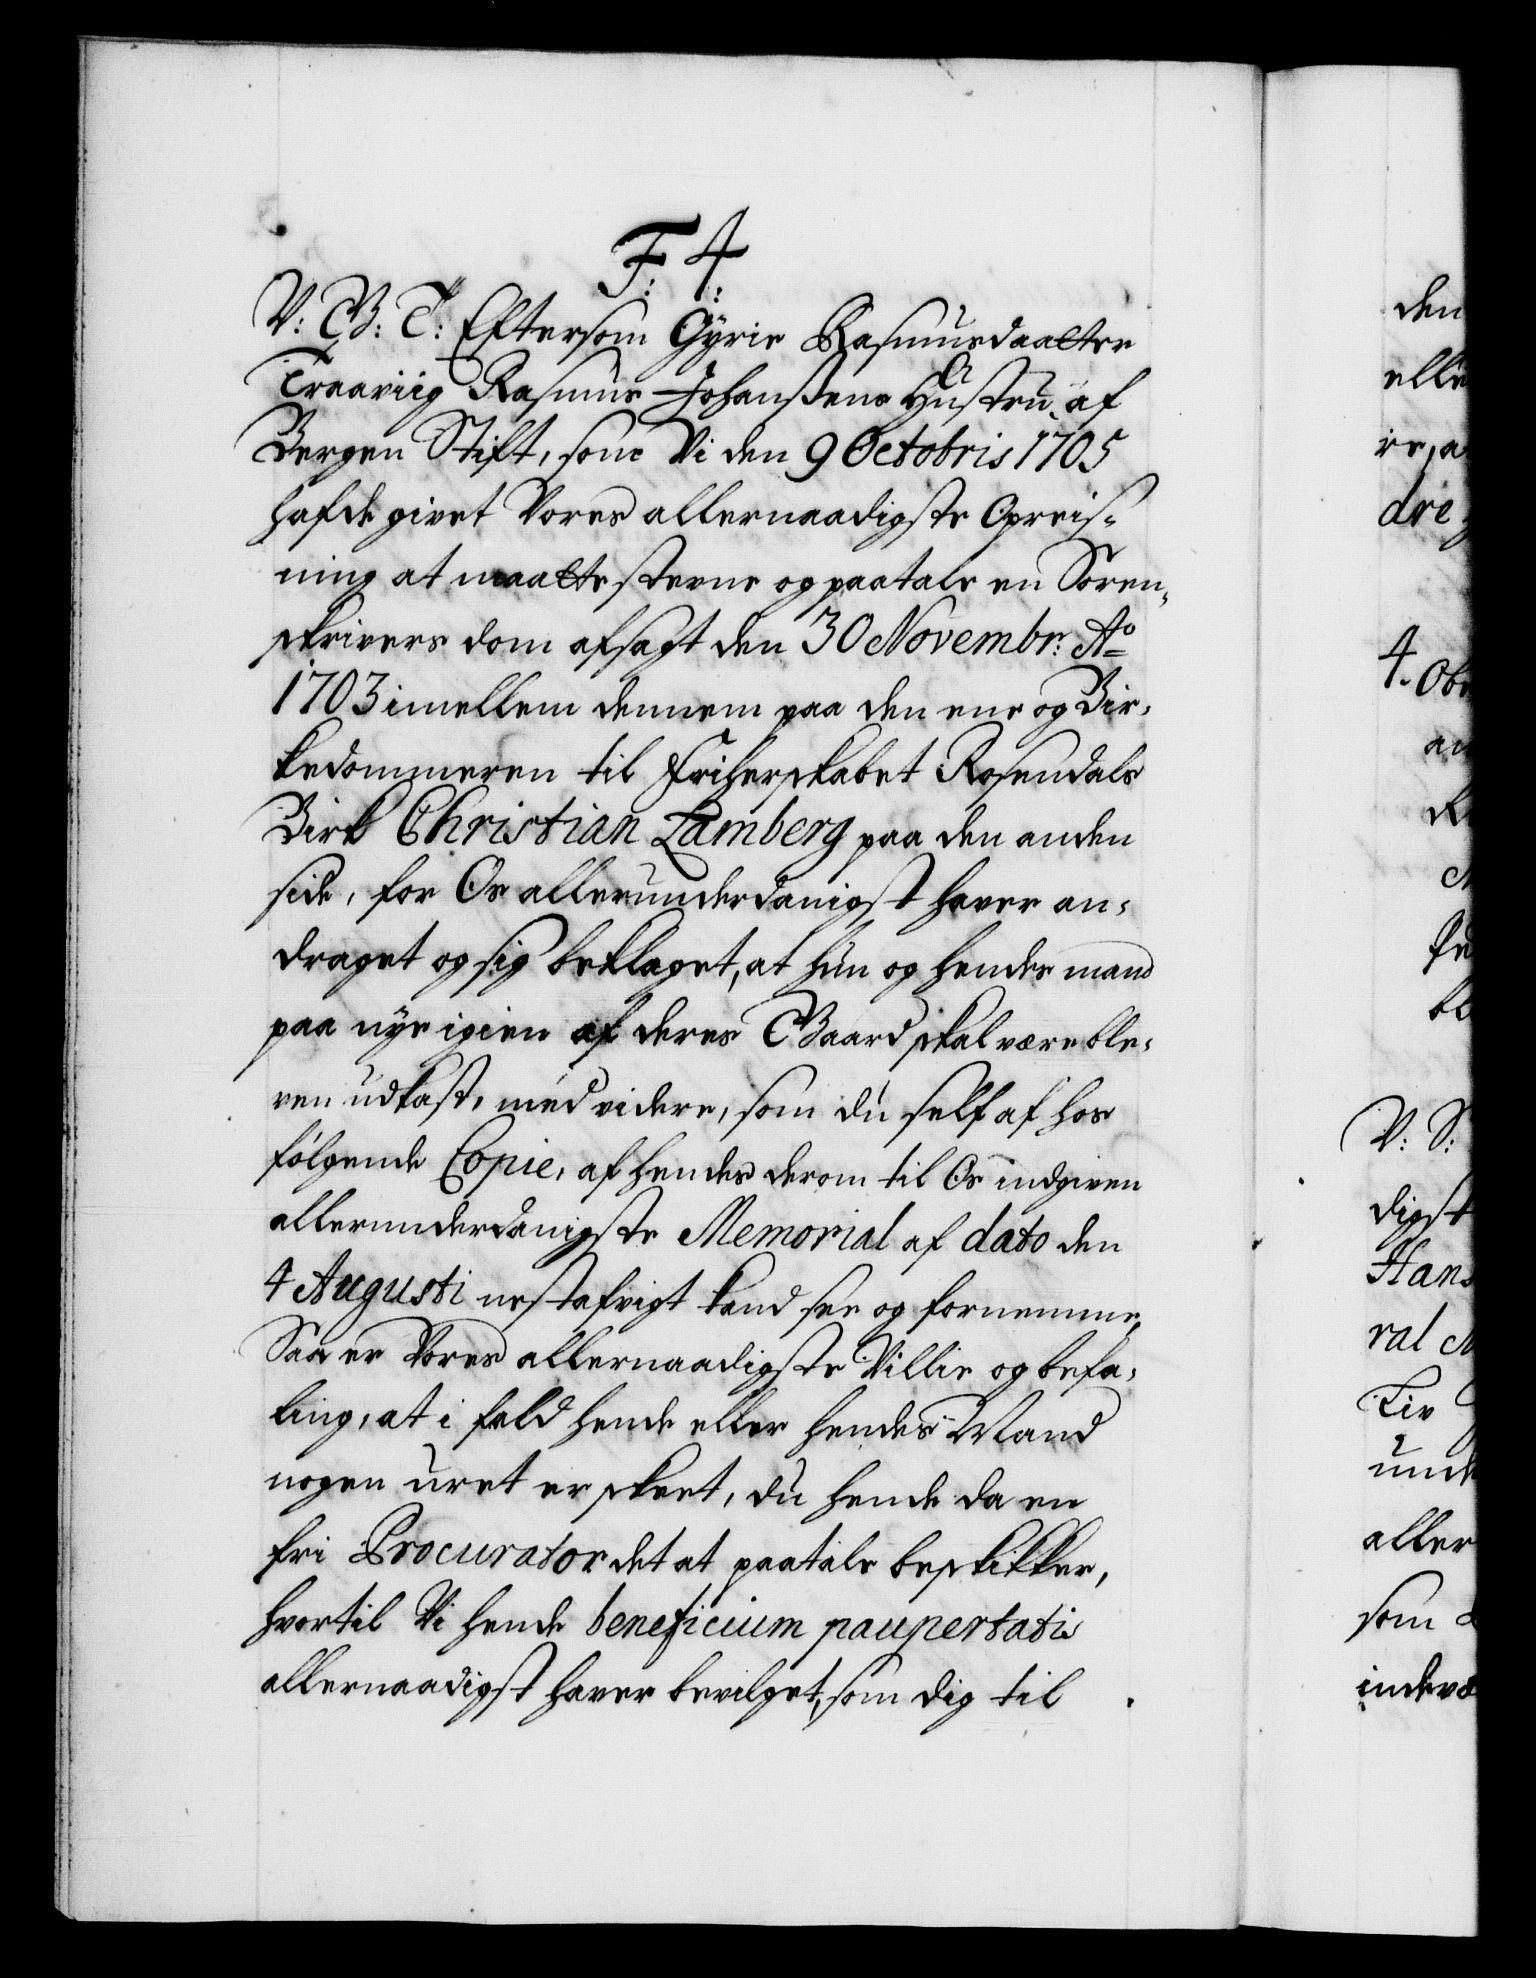 F: 4:
V: G: T: Eftersom Gÿrie Rasmusdaatter
Traaviig Rasmus Johanßens Hustru af
Bergen Stift, som Vi den 9 Octobris 1705
hafde givet Vores allernaadigste Opreis-
ning at maatte stevne og paatale en Soren-
skrivers dom afsagt den 30 Novembr: Ao
1703 imellem dennem paa den ene og Bir-
kedommeren til Friherskabet Rosendals
Birk Christian Lamberg paa den anden
side, for Os allerunderdanigst haver an-
draget og sig beklaget, at hun og hendes mand
paa nÿe igien af deres Gaard skal være ble-
ven udkast, med videre, som du self af hos
følgende Copie, af hendes derom til Os indgiven
allerunderdanigste Memorial af dato den
4 Augusti nestafvigt kand see og fornemme,
Saa er Vores allernaadigste Villie og befa-
ling, at i fald hende eller hendes Mand
nogen uret er skeet, du hende da en
fri Procurator det at paatale beskikker,
hvortil Vi hende beneficium paupertatis
allernaadigst haver bevilget, som dig til
den
elle
re, a
dre
4. Obr
an
V: S:
digst
Hans
ral
Liv
unde
aller
som
indvæ